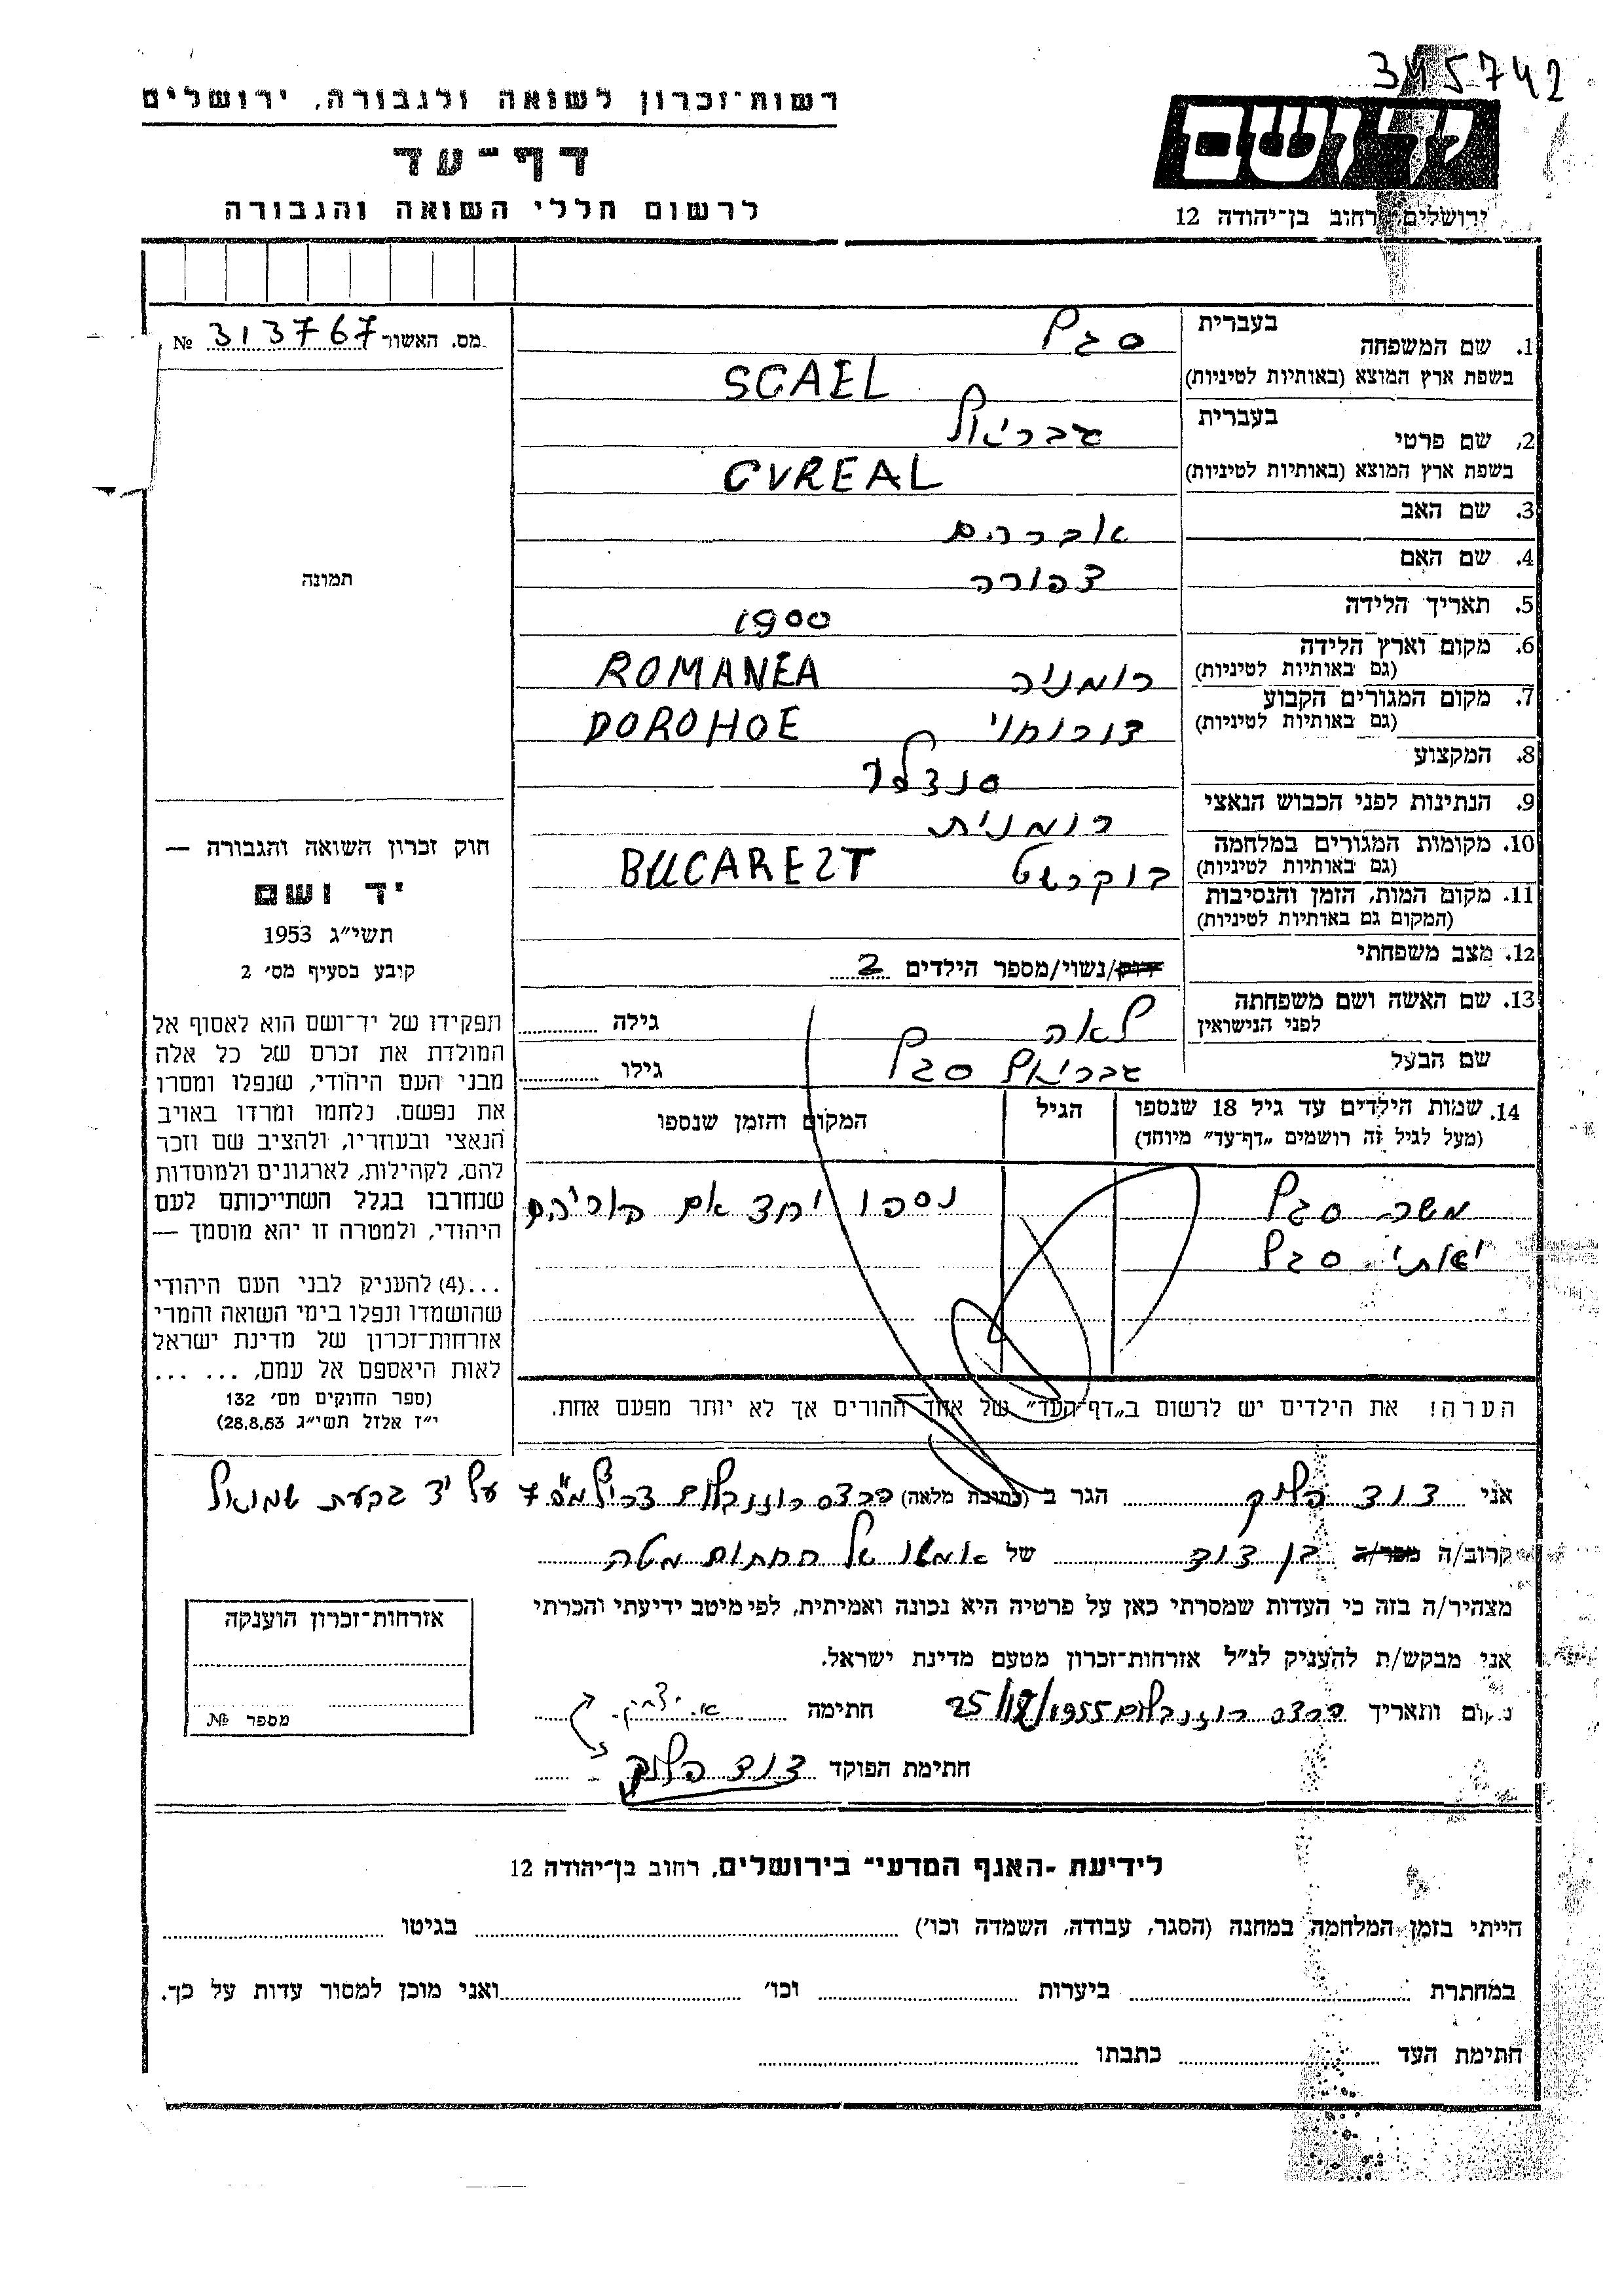 345742
רשות־זכרון לשואה ולגבורה, ירושלים
דף־עד
לרשום חללי השואה והגבורה
יד ושם
ירושלים, רחוב בן־יהודה 12
מס. האשור 313767 №
1. שם המשפחה בעברית סגל
בשפת ארץ המוצא (באותיות לטיניות) SGAEL
2. שם פרטי בעברית גבריאל
בשפת ארץ המוצא (באותיות לטיניות) GVREAL
3. שם האב אברהם
4. שם האם צפורה
5. תאריך הלידה 1900
6. מקום וארץ הלידה רומניה ROMANEA
(גם באותיות לטיניות)
7. מקום המגורים הקבוע דורוחוי DOROHOE
(גם באותיות לטיניות)
8. המקצוע סנדלר
9. הנתינות לפני הכבוש הנאצי רומנית
10. מקומות המגורים במלחמה בוקרשט BUCAREST
(גם באותיות לטיניות)
11. מקום המות, הזמן והנסיבות
(המקום גם באותיות לטיניות)
12. מצב משפחתי רוק/נשוי/מספר הילדים 2
13. שם האשה ושם משפחתה לאה גילה
לפני הנישואין
שם הבעל גבריאל סגל גילו
14. שמות הילדים עד גיל 18 שנספו הגיל המקום והזמן שנספו
(מעל לגיל זה רושמים „דף־עד” מיוחד)
משה סגל נספו יחד אם הוריהם
סגל
הערה! את הילדים יש לרשום ב„דף־העד” של אחד ההורים אך לא יותר מפעם אחת.
תמונה
חוק זכרון השואה והגבורה —
יד ושם
תשי״ג 1953
קובע בסעיף מס׳ 2
תפקידו של יד־ושם הוא לאסוף אל
המולדת את זכרם של כל אלה
מבני העם היהודי, שנפלו ומסרו
את נפשם, נלחמו ומרדו באויב
הנאצי ובעוזריו, ולהציב שם וזכר
להם, לקהילות, לארגונים ולמוסדות
שנחרבו בגלל השתייכותם לעם
היהודי, ולמטרה זו יהא מוסמך —
...(4) להעניק לבני העם היהודי
שהושמדו ונפלו בימי השואה והמרי
אזרחות־זכרון של מדינת ישראל
לאות היאספם אל עמם, ... ...
(ספר החוקים מס׳ 132
י״ז אלול תשי״ג 28.8.53)
אני דוד הגר ב (כתובת מלאה) רוזנבלום 7 על יד גבעת שמואל
קרוב/ה מכר/ה בן דוד של החתום מטה
מצהיר/ה בזה כי העדות שמסרתי כאן על פרטיה היא נכונה ואמיתית, לפי מיטב ידיעתי והכרתי
אני מבקש/ת להעניק לנ״ל אזרחות־זכרון מטעם מדינת ישראל.
מקום ותאריך רוזנבלום 1955 חתימה
חתימת הפוקד דוד
אזרחות־זכרון הוענקה
מספר №
לידיעת ״האגף המדעי״ בירושלים, רחוב בן־יהודה 12
הייתי בזמן המלחמה במחנה (הסגר, עבודה, השמדה וכו׳) בגיטו
במחתרת ביערות וכו׳ ואני מוכן למסור עדות על כך.
חתימת העד כתבתו